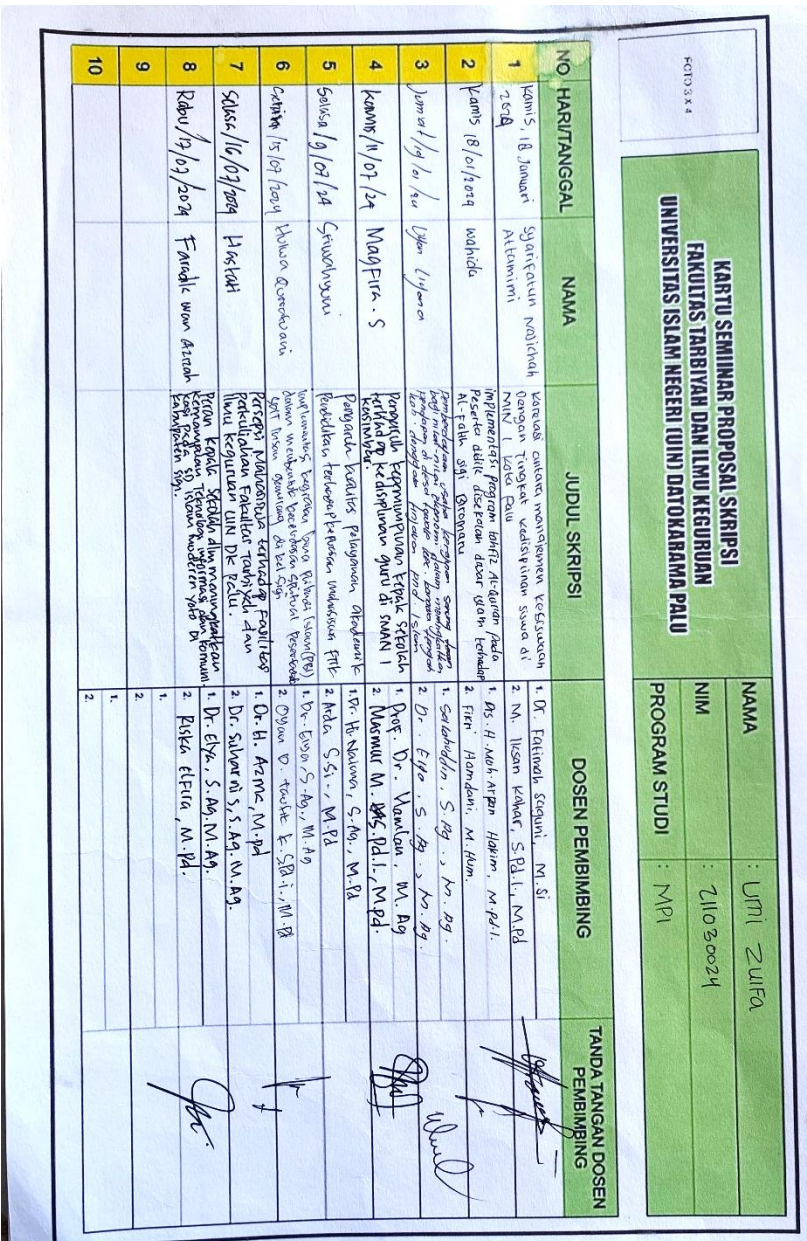 FOTO 3 X 4
KARTU SEMINAR PROPOSAL SKRIPSI
FAKULTAS TARBIYAH DAN ILMU KEGURUAN
UNIVERSITAS ISLAM NEGERI (UIN) DATOKARAMA PALU
NAMA : UMI ZULFA
NIM : 211030024
PROGRAM STUDI : MPI
NO HARI/TANGGAL NAMA JUDUL SKRIPSI DOSEN PEMBIMBING TANDA TANGAN DOSEN PEMBIMBING
1 Kamis, 18 Januari 2024
Syarifatun Nalichah
Attamimi
Korelasi antara manajemen kesiswaan
Dengan Tingkat kedisiplinan siswa di
MIN 1 kota palu
1. Dr. Fatimah Saguni, M.Si
2. M. Iksan Kahar, S.Pd.I., M.Pd
2 Kamis 18/01/2024
Wahida
Implementasi program tahfiz Al-Qur'an Pada
Peserta didik disekolah dasar islam terhadap
AL-Fahd Sigi Biromaru
1. Drs. H. Moh. Arfan Hakim, M.Pd.I.
2. Fikri Hamdani, M.Hum.
3 Jumat/19/01/24
1. Salahuddin, S.Ag., M.Ag.
2. Dr. Elya, S.Ag., M.Ag.
4 Kamis/11/07/24
Magfira. S
Pengaruh Kepemimpinan Kepala Sekolah
terhadap kedisplinan guru di SMAN 1
Kasimbar.
1. Prof. Dr. Hamlan, M.Ag
2. Masmur M. S.Pd.I., M.Pd.
5 Selasa/9/07/24
Sriwahyuni
Pengaruh kualitas pelayanan akademik
Pendidikan terhadap kepuasan mahasiswa FTIK
1. Dr. Hj. Naima, S.Ag., M.Pd
2. Arda S.Si., M.Pd
6 15/07/2024
Hulwa Qurrotuaini
1. Dr. Elya, S.Ag., M.Ag
2. Taufik K. S.Pd.I., M.Pd
7 Selasa/16/07/2024
Hastati
Persepsi Mahasiswa terhadap Fasilitas
perkuliahan Fakultas Tarbiyah dan
Ilmu Keguruan UIN DK Palu.
1. Dr. H. Azma, M.Pd
2. Dr. Suharnis, S.Ag. M.Ag.
8 Rabu/17/07/2024
Faradik wan Azizah
Peran Kepala Sekolah dlm meningkatkan
Kemampuan Teknologi informasi dan komuni
kasi pada SD Islam moderen Yoto Di
kabupaten sigi.
1. Dr. Elya, S.Ag, M.Ag.
2. Riska Elfira, M.Pd.
9
1.
2.
10
1.
2.